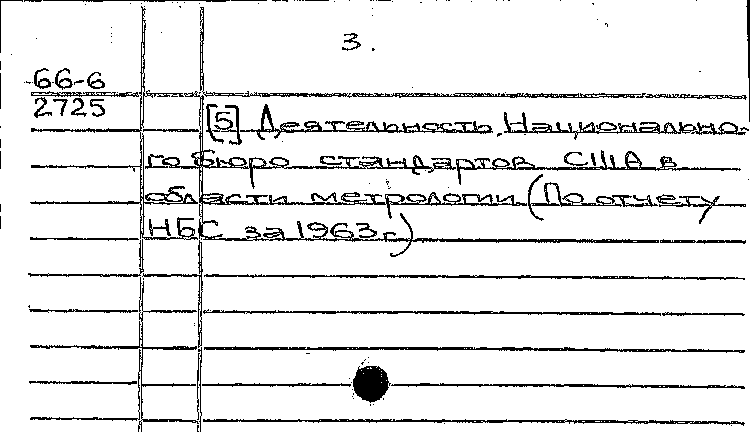 3.
66-6
2725
[5] Деятельность Национально-
го бюро стандартов США в
области метрологии (По отчету
НБС за 1963 г.)